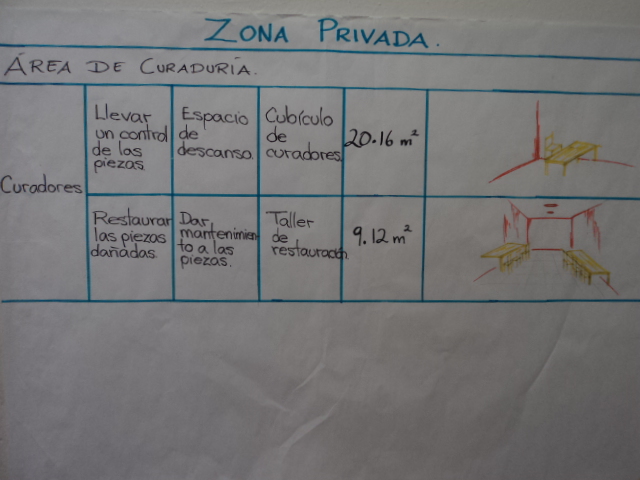 ZONA PRIVADA.
ÁREA DE CURADURÍA.
Curadores
Llevar
un control
de las
piezas.
Espacio
de
descanso.
Cubículo
de
curadores
20.16 m²
Restaurar
las piezas
dañadas.
Dar
mantenimien
to a las
piezas.
Taller
de
restauración.
9.12 m²